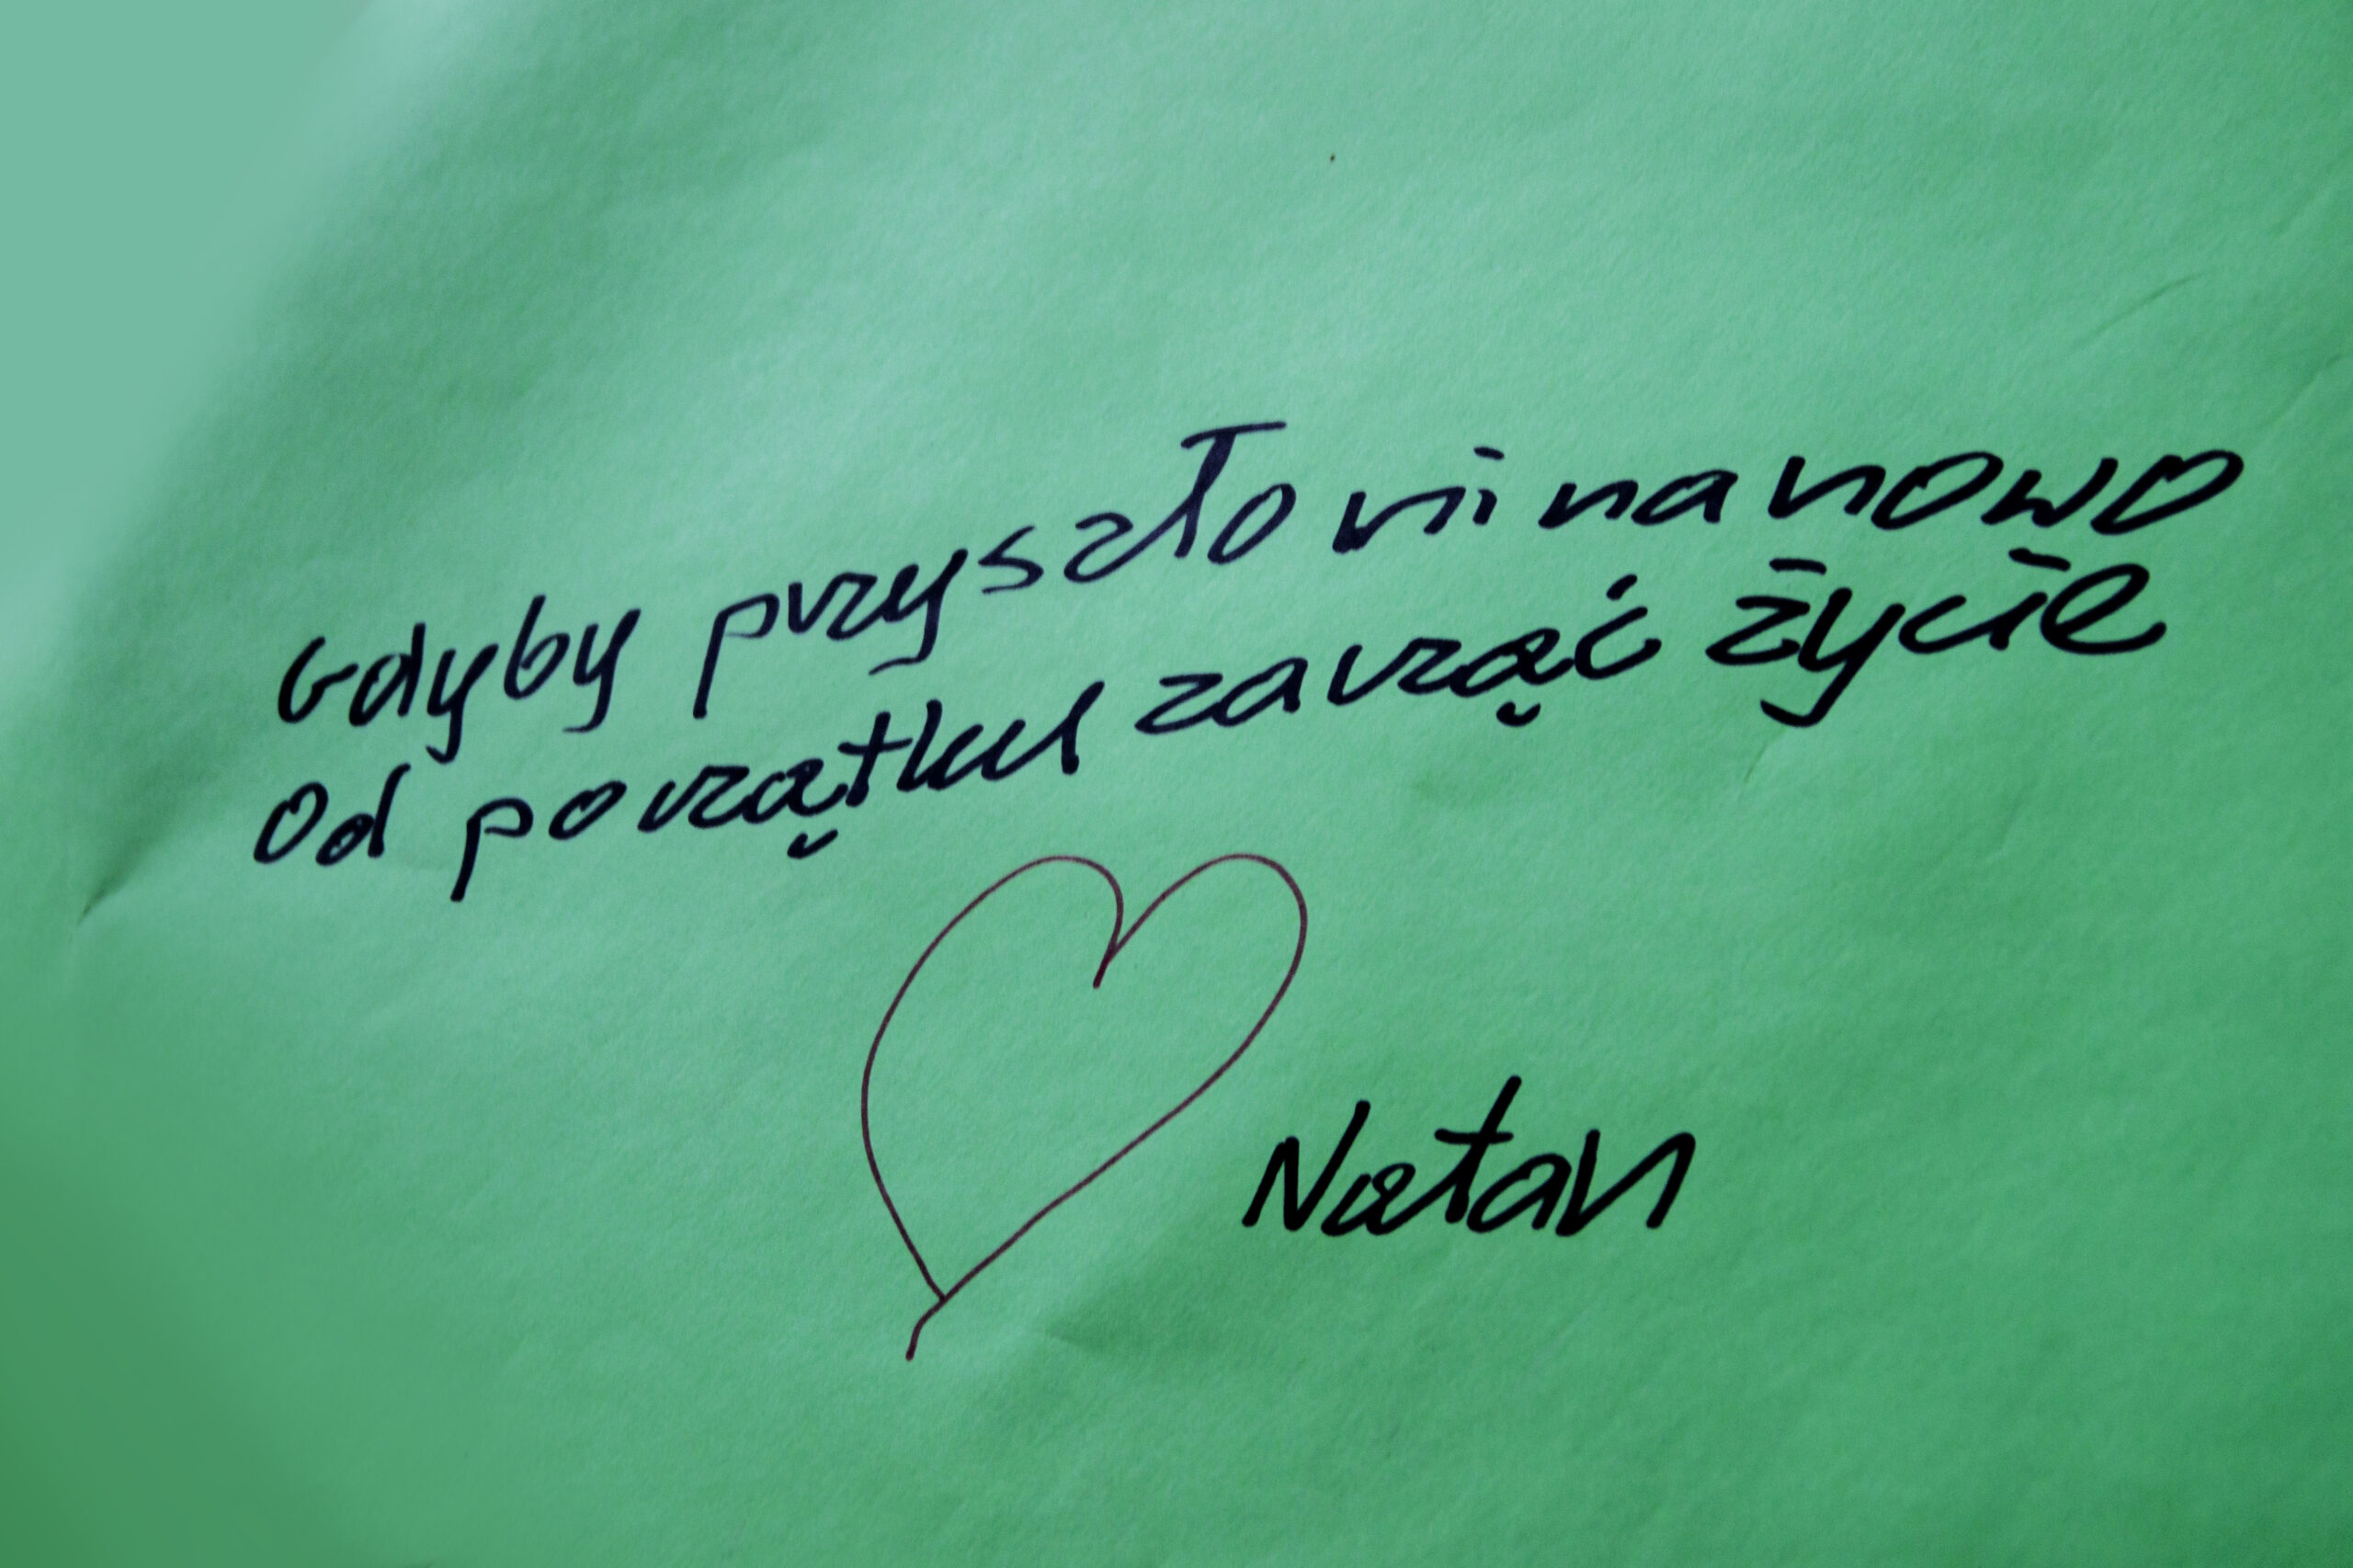 Gdyby przyszło mi na nowo
Od początku zacząć życie
Natan